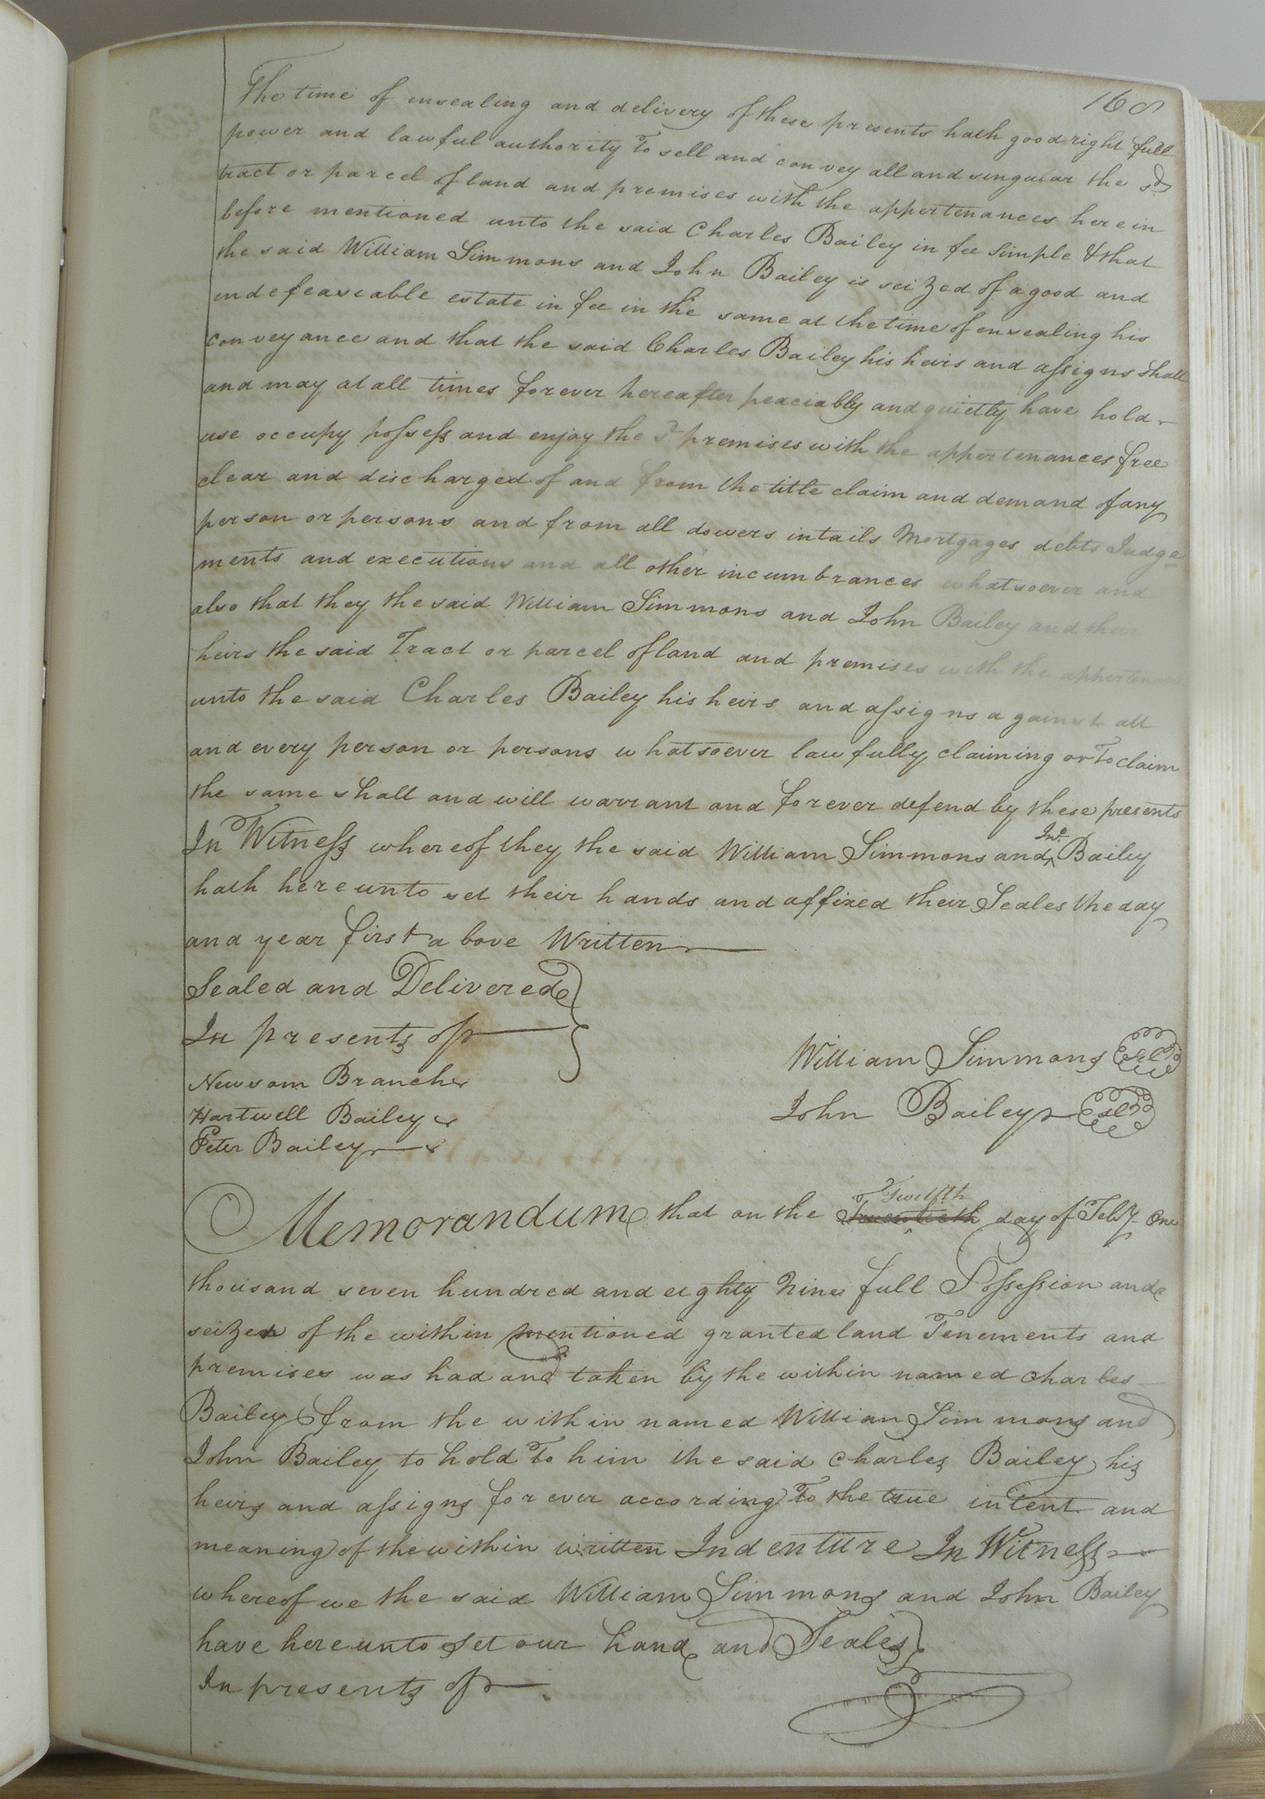 168
The time of ensealing and delivery of these presents hath good right full
power and lawful authority To sell and convey all and singular the sd
tract or parcel of land and premises with the appertenances herein
before mentioned unto the said Charles Bailey in fee simple & that
the said William Simmons and John Bailey is seized of a good and
indefeaseable estate in fee in the same at the time of ensealing his
conveyance and that the said Charles Bailey his heirs and assigns shall
and may at all times forever hereafter peaciably and quietly have hold
use occupy possess and enjoy the sd premises with the appertenances free
clear and discharged of and from the title claim and demand of any
person or persons and from all dowers intails Mortgages debts Judge
ments and executions and all other incumbrances whatsoever and
also that they the said William Simmons and John Bailey and their
heirs the said Tract or parcel of land and premises with the appertenances
unto the said Charles Bailey his heirs and assigns against all
and every person or persons whatsoever lawfully claiming or To claim
the same shall and will warrant and forever defend by these presents
In Witness whereof they the said William Simmons and Jno Bailey
hath hereunto set their hands and affixed their Seales the day
and year first above Written
Sealed and Delivered
In presents of
William Simmons Seal
Newsom Branch
John Bailey Seal
Hartwell Bailey
Peter Bailey
Memorandum that on the Twelfth day of Feby One
thousand seven hundred and eighty Nine full Possession and
seized of the within mentioned granted land Tenements and
premises was had and taken by the within named Charles
Bailey from the within named William Simmons and
John Bailey to hold To him the said Charles Bailey his
heirs and assigns forever according To the true intent and
meaning of the within written Indenture In Witness
whereof we the said William Simmons and John Bailey
have hereunto set our hand and Seales
In presents of